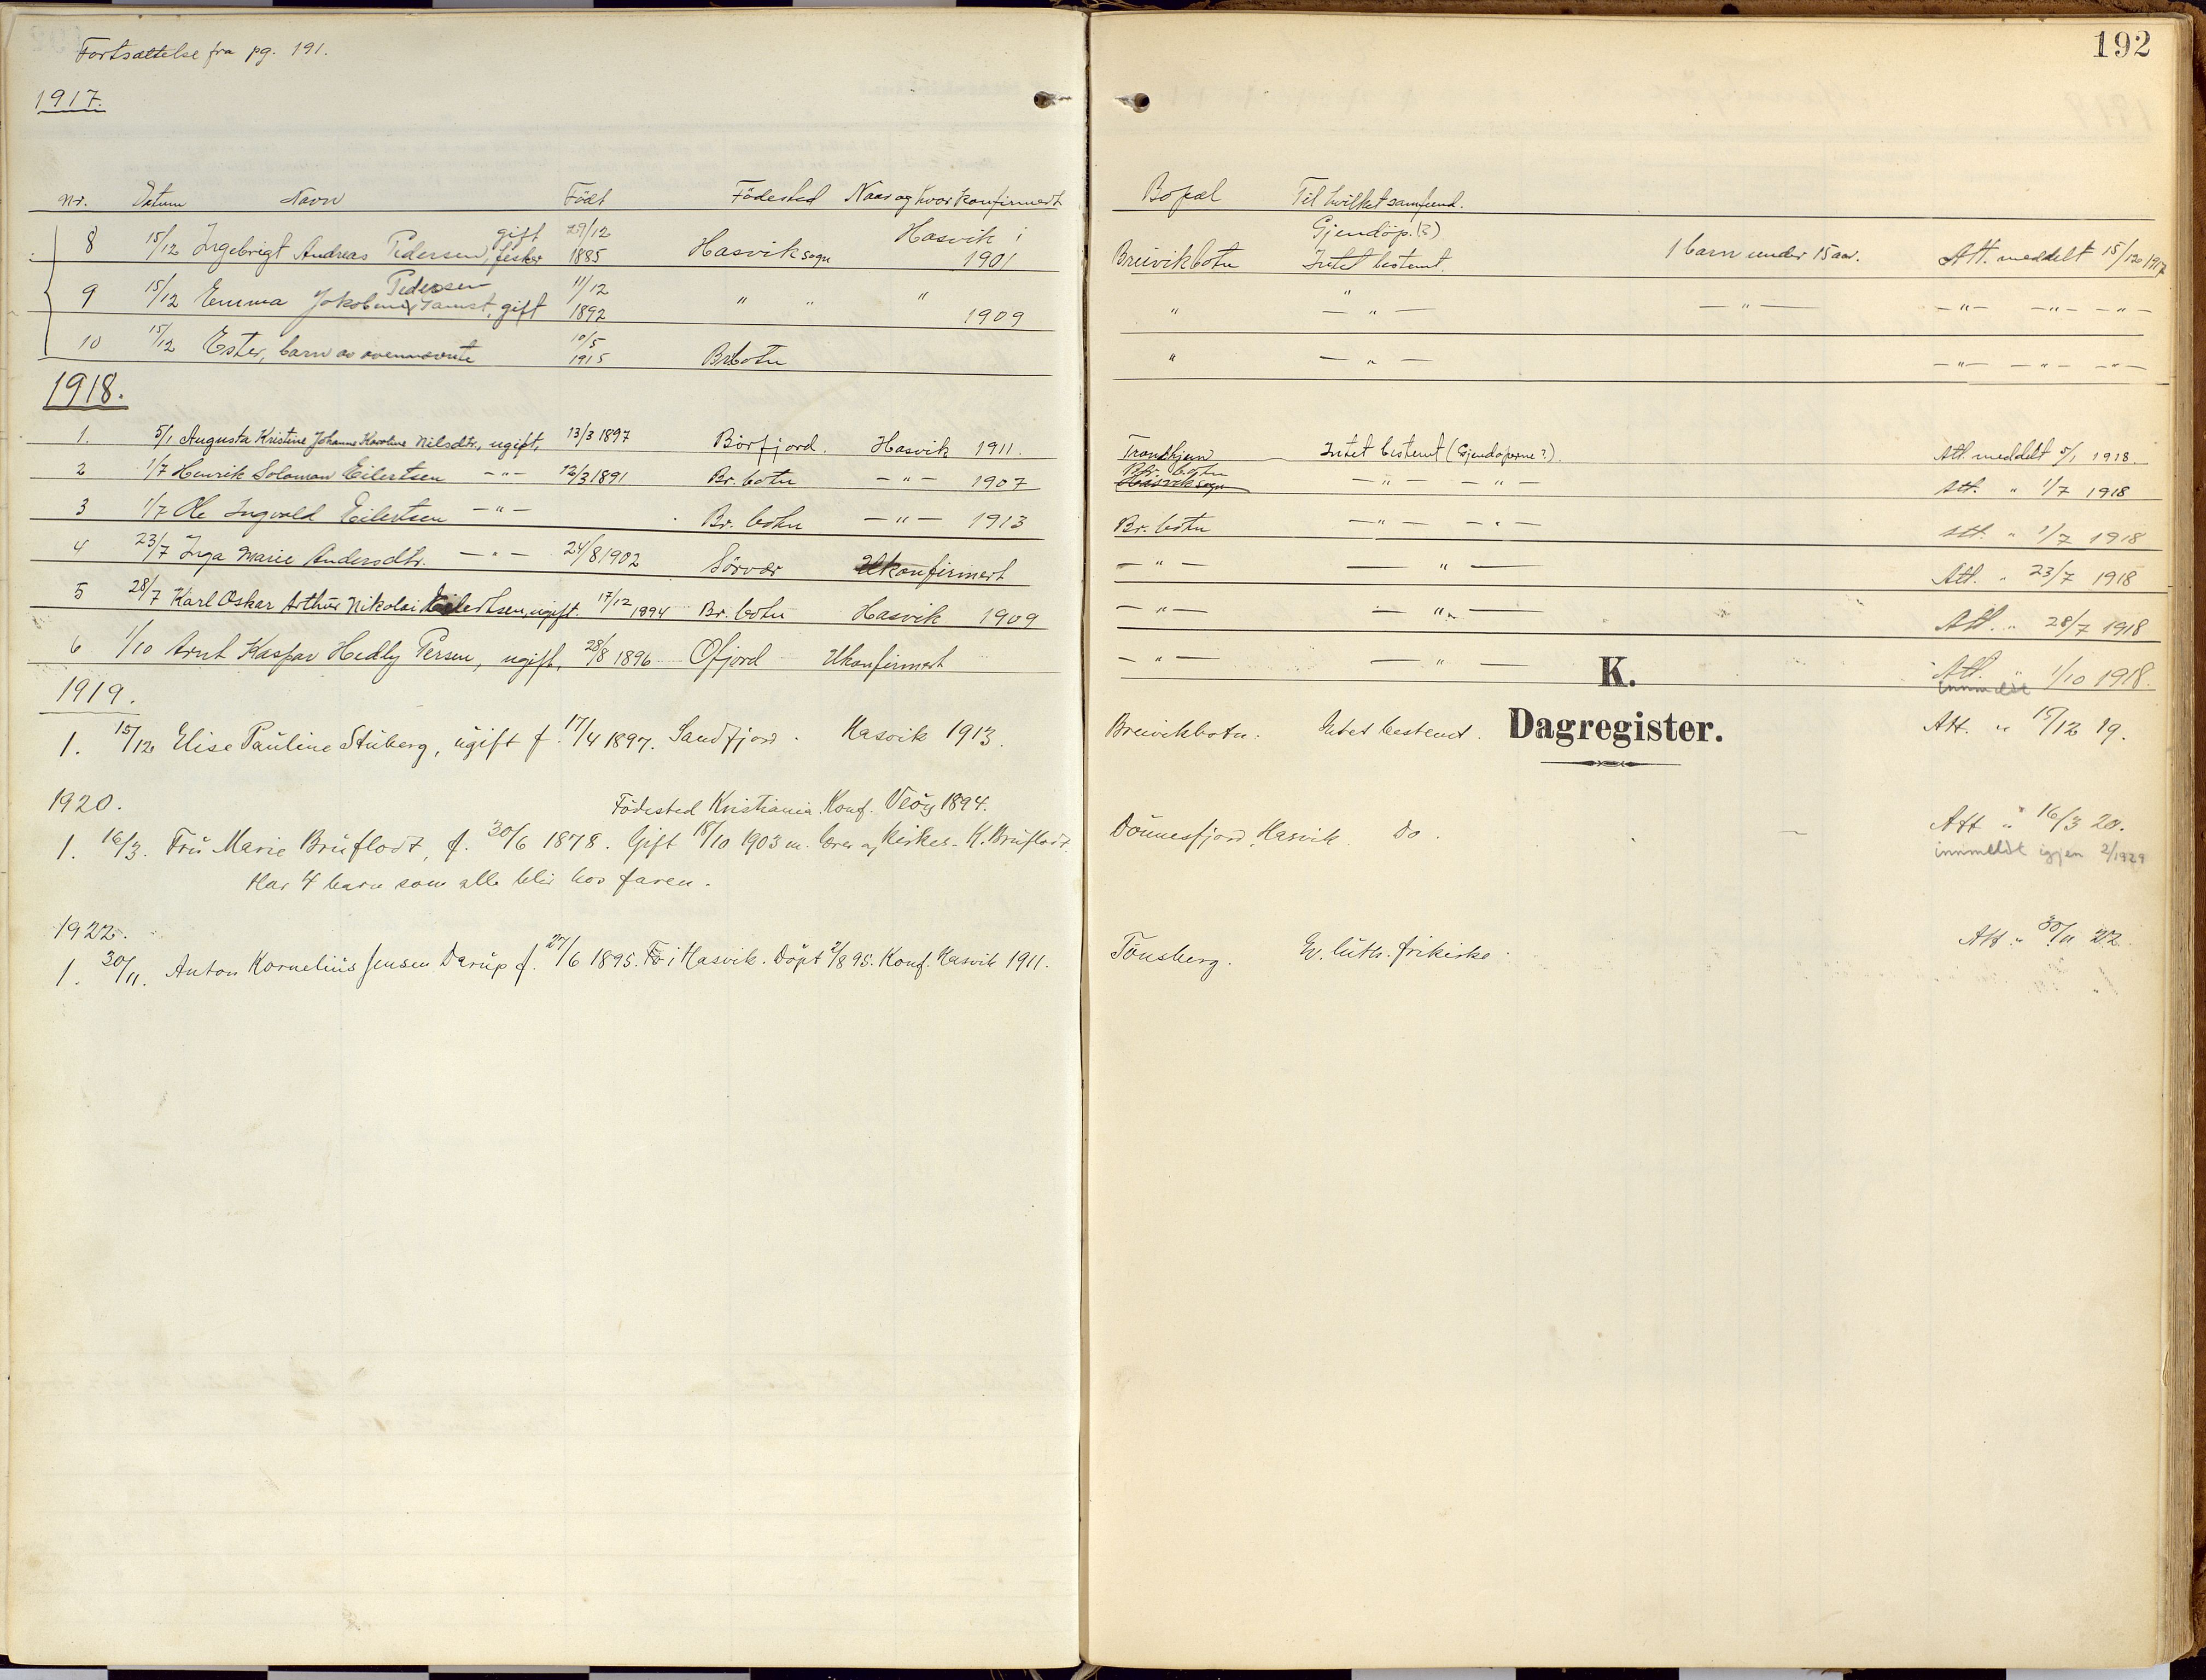 Fortsættelse fra pg. 191.
192
1917.
Nr. Datum Navn Födt Födested Naar og hvor konfirmert Bopæl Til hvilket samfund.
8 15/12 Ingebrigt Andreas Pedersen, gift fisker 29/12 1885 Hasvik sogn Hasvik i 1901 Breivikbotn Gjendöp. (?) Intet bestemt. 1 barn under 15 aar. Att. meddelt 15/12 1917
9 15/12 Emma Jakobine Pedersen gift 11/12 1892 " " " 1909 " " — " — — " — — " — — " — — " —
10 15/12 Ester, barn av ovennævnte 10/5 1915 Br.botn " — " — — " — — " — — " —
1918.
1. 5/1 Augusta Kristine Johanne Karoline Nilsdtr., ugift, 13/3 1897 Börfjord. Hasvik 1911. Trondhjem Intet bestemt (Gjendøperne?). Att. meddelt 5/1 1918.
2 1/7 Henrik Solomon Eilertsen — " — 12/3 1891 Br. botn — " — 1907 Br. botn Hasvik sogn — " — — " — Att. " 1/7 1918
3 1/7 Ole Ingvald Eilertsen — " — Br. botn — " — 1913 Br. botn — " — — " — Att. " 1/7 1918
4 23/7 Inga Marie Andersdtr. — " — 24/8 1902 Sörvær Ukonfirmert — " — — " — Att. " 23/7 1918
5 28/7 Karl Oskar Arthur Nikolai Eilertsen, ugift. 17/12 1894 Br. botn Hasvik 1909 — " — — " — Att. " 28/7 1918
6 1/10 Arnt Kaspar Hedly Persen, ugift, 28/8 1896 Ofjord Ukonfirmert — " — — " — Att. " 1/10 1918.
K.
Dagregister.
1919.
innmeldt
1. 15/12 Elise Pauline Stuberg, ugift f. 17/4 1897. Sandfjord. Hasvik 1913. Breivikbotn. Intet bestemt. Att. " 15/12 19.
1920. Födested Kristiania. Konf. Veöy 1894.
1. 16/3. Fru Marie Bruflodt, f. 30/6 1878. Gift 18/10 1903 m. lærer og kirkes. K. Bruflodt. Dönnesfjord, Hasvik. Do. — Att " 16/3 20.
Har 4 barn som alle blir hos faren. innmeldt igjen 2/1929
1922.
1. 30/11. Anton Kornelius Jensen Darup f. 27/6 1895. Fö i Hasvik. Döpt 2/8 95. Konf. Hasvik 1911. Tönsberg. Ev. luth. frikirke. Att " 30/11 22.